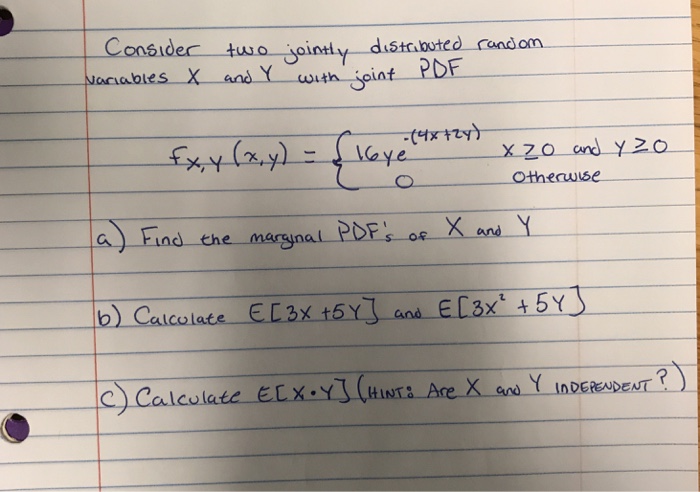 Consider two jointly distributed random
variables X and Y with joint PDF
f_{X,Y}(x,y) = { 16ye^{-(4x+2y)} x ≥ 0 and y ≥ 0
0 otherwise
a) Find the marginal PDF's of X and Y
b) Calculate E[3X + 5Y] and E[3X² + 5Y]
c) Calculate E[X•Y] (HINT: Are X and Y INDEPENDENT?)